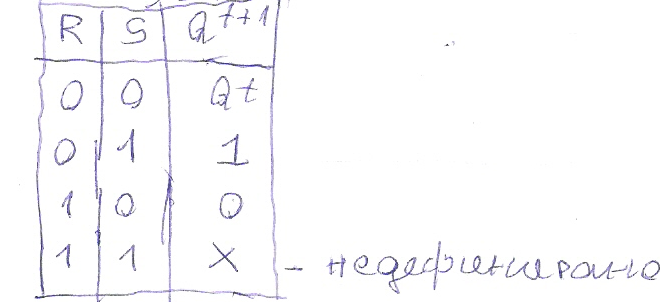 R S Q^t+1
0 0 Qt
0 1 1
1 0 0
1 1 X - недефинирано